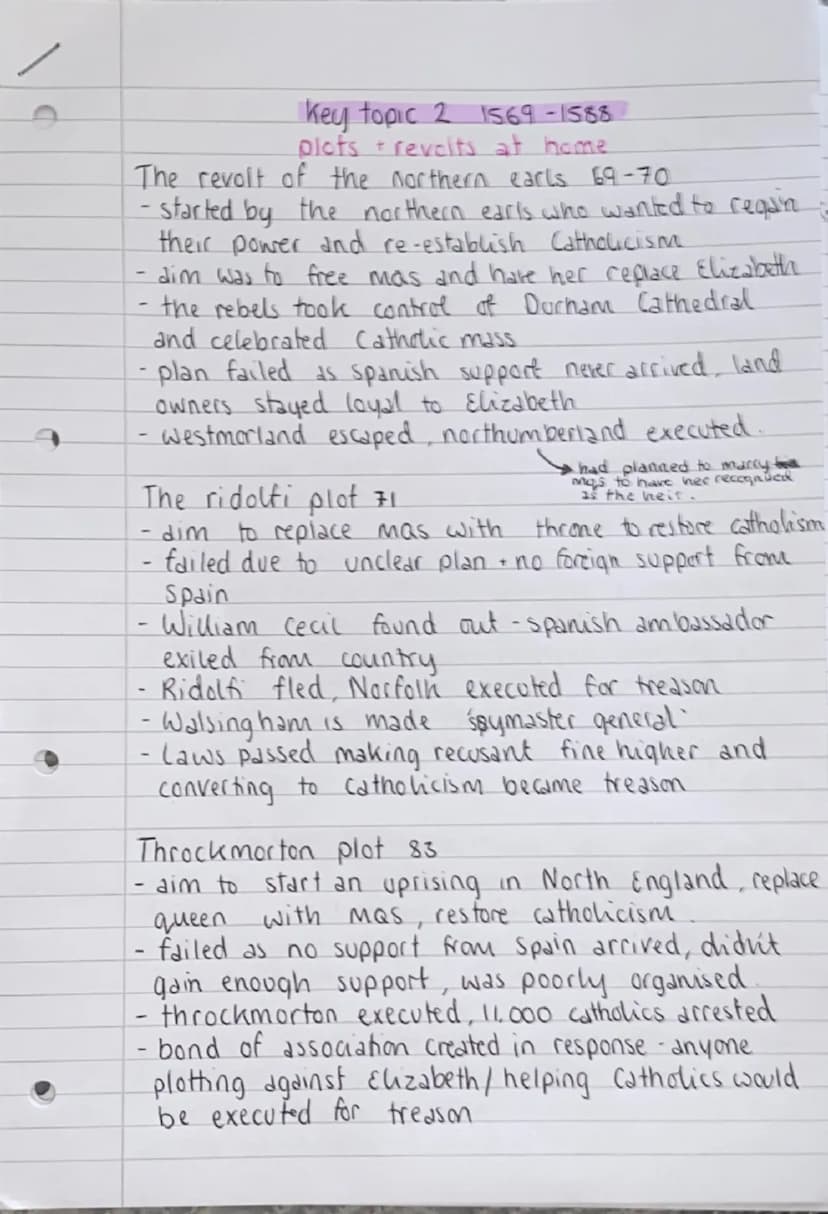 Key topic 2 1569-1588
plots + revolts at home
The revolt of the northern earls 69-70
- started by the northern earls who wanted to regain
their power and re-establish Catholicism
- aim was to free mqs and have her replace Elizabeth
- the rebels took control of Durham Cathedral
and celebrated Catholic mass
- plan failed as spanish support never arrived, land
owners stayed loyal to Elizabeth
- westmorland escaped, northumberland executed.
had planned to marry
mqs to have her recognised
as the heir.
The ridolfi plot 71
- aim to replace mqs with throne to restore catholism
- failed due to unclear plan + no foreign support from
Spain
- William Cecil found out - spanish ambassador
exiled from country
- Ridolfi fled, Norfolk executed for treason
- Walsingham is made 'spymaster general'
- Laws passed making recusant fine higher and
converting to catholicism became treason
Throckmorton plot 83
- aim to start an uprising in North England, replace
queen with MQS, restore catholicism.
- failed as no support from spain arrived, didn't
gain enough support, was poorly organised.
- throckmorton executed, 11,000 catholics arrested
- bond of association created in response - anyone
plotting against Elizabeth/helping Catholics would
be executed for treason